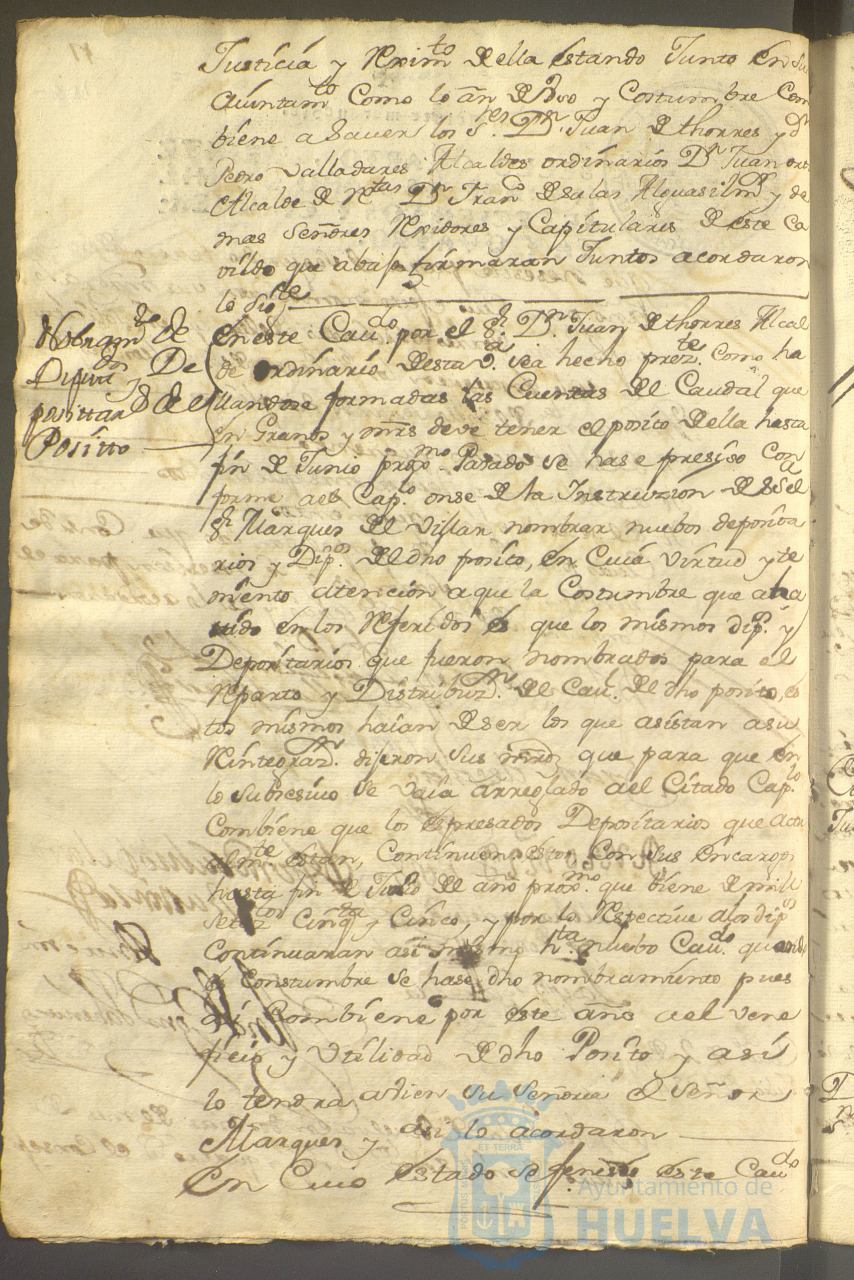 Justicia y Rexim.to de ella estando Junto en su
Aiuntam.to Como lo an de Vso y Costumbre Com
biene a Sauer los S.res D.n Juan de thorres y d.n
Pedro Valladares Alcaldes ordinarios D.n Juan
Alcalde de D.n Fran.co de Salas Alguasil m.r y de
mas Señores Rexidores y Capitulares de este Ca
vildo que abajo firmaran Juntos acordaron
lo sig.te
Nobram.to de
Diputt.dos y De
posittar.s del
Positto
En este Cau.do por el S.r D.n Juan de thorres Alcal
de ordinario de esta v.a se a hecho prez.te como ha
llandose formadas las Cuentas del Caudal que
en Granos y mrs deve tener el posito de ella hasta
fin de Junio prox.mo Pasado se hase presiso Con
forme a el Cap.o onse de la Instruzion del
S.r Marques del Villar nombrar nuebos deposita
rios y Dip.s del dho posito, en Cuia virtud y te
niento atencion a que la Costumbre que a ha
uido en los Referidos es que los mismos dip.s y
Depositarios que fueron nombrados para el
Reparto y Distribuz.n del Cau.l del dho posito, es
tos mismos haian de ser los que asistan a su
Reintegraz.n dijeron sus mrds que para que en
lo subsesiuo se vaia arreglado a el Citado Cap.lo
Combiene que los espresados Depositarios que actu
alm.te estan, Continuen estos Con sus encargos
hasta fin de Julio del año prox.mo que biene de mill
setez.tos Cinq.ta y Cinco, y por lo Respectiue a los dip.s
Continuaran asi mismo h.ta nuebo Cau.do quando
es Constumbre se hase dho nombramiento pues
asi Combiene por este año a el vene
ficio y Vtilidad de dho Posito y asi
lo tendra a bien su Señoria el Señor
Marques y asi lo acordaron
En Cuio estado se fenesio este Cau.do
Ayuntamiento de
HUELVA